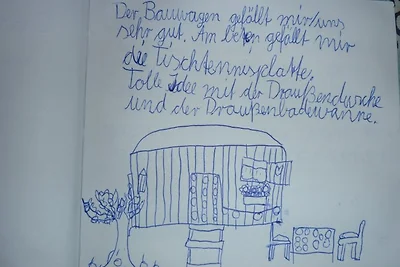 Der Bauwagen gefällt mir/uns
sehr gut. Am besten gefällt mir
die Tischtennisplatte.
Tolle Idee mit der Draußendusche
und der Draußenbadewanne.